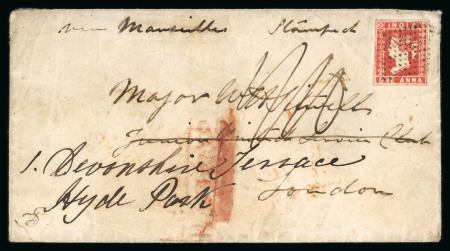 via Marseilles Stamped
INDIA
ONE ANNA
Major
Junior United Service Club
1. Devonshire Terrace
Hyde Park London